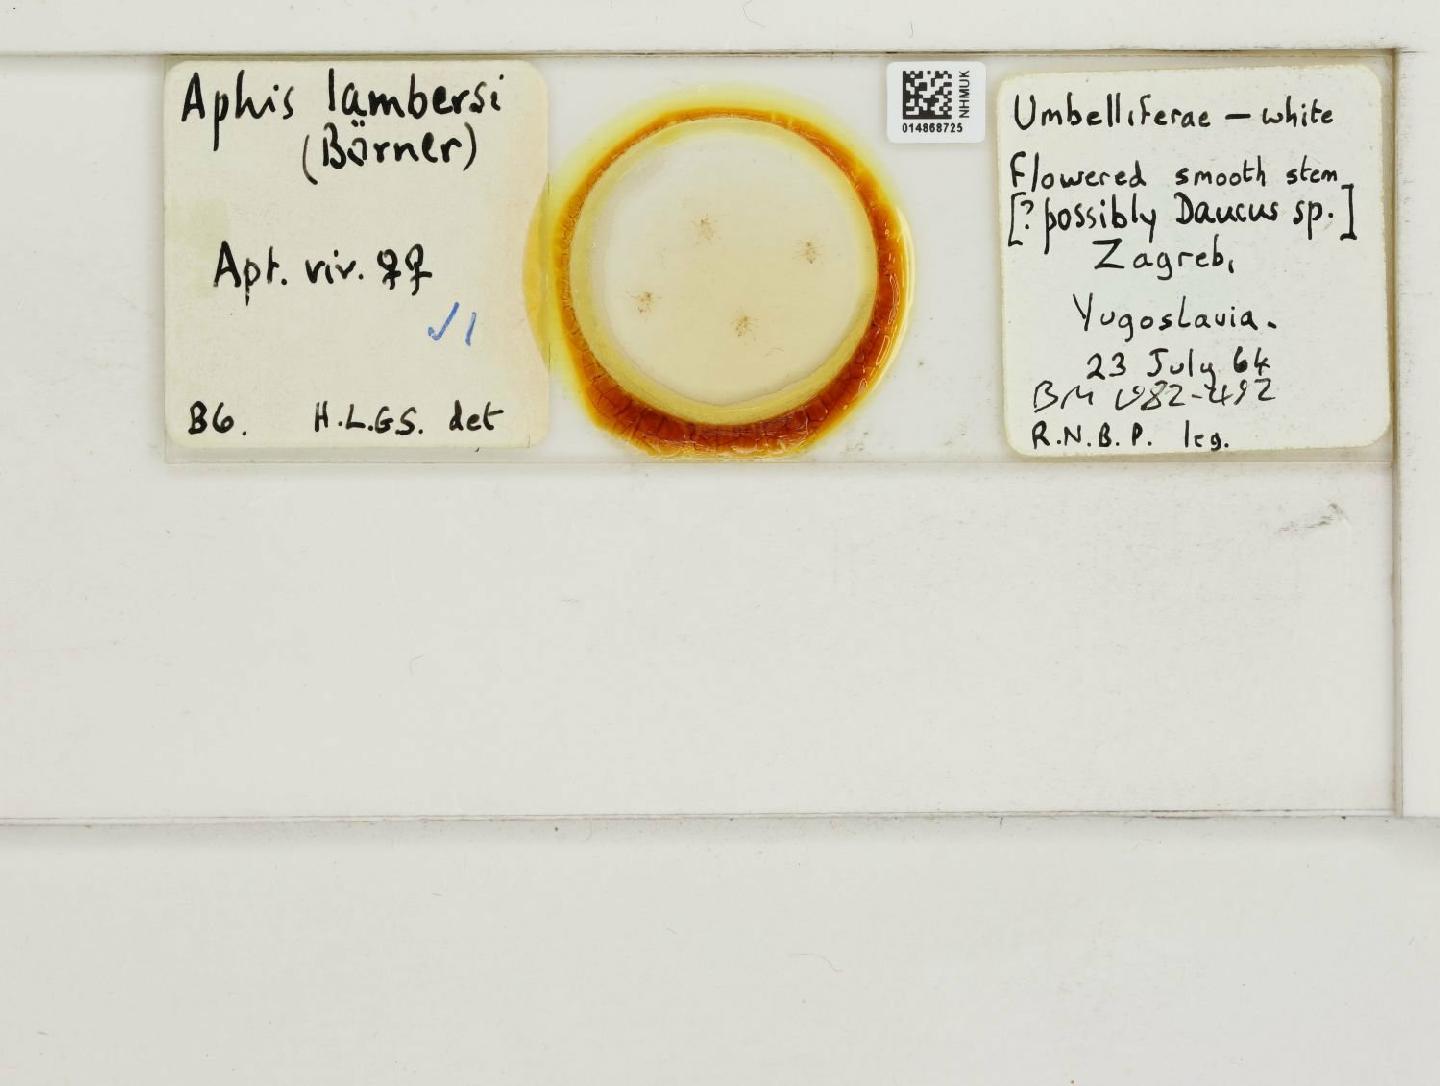 Aphis lambersi
(Börner)
Apt. viv. ♀♀
√1
B6. H.L.G.S. det
NHMUK
014868725
Umbelliferae – white
flowered smooth stem
[? possibly Daucus sp.]
Zagreb,
Yugoslavia.
23 July 64
BM 1982-492
R.N.B.P. leg.